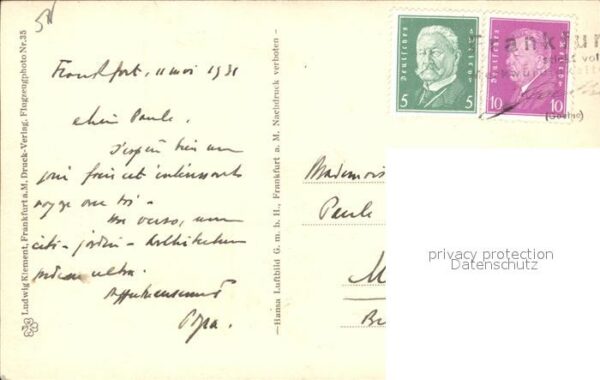 Frankfort, 11 mai 1931
Chère Paule,
J'espère bien un
jour faire cet intéressant
voyage avec toi -
au verso, une
cité - jardin - architecture
Affectueusement
Papa.
Ludwig Klement, Frankfurt a.M. Druck-Verlag, Flugzeugphoto Nr. 35
— Hansa Luftbild G. m. b. H., Frankfurt a. M. Nachdruck verboten —
Deutsches Reich
5 5
Deutsches Reich
10 10
Frankfur
(Goethe)
Mademois
Paule
M
privacy protection
Datenschutz